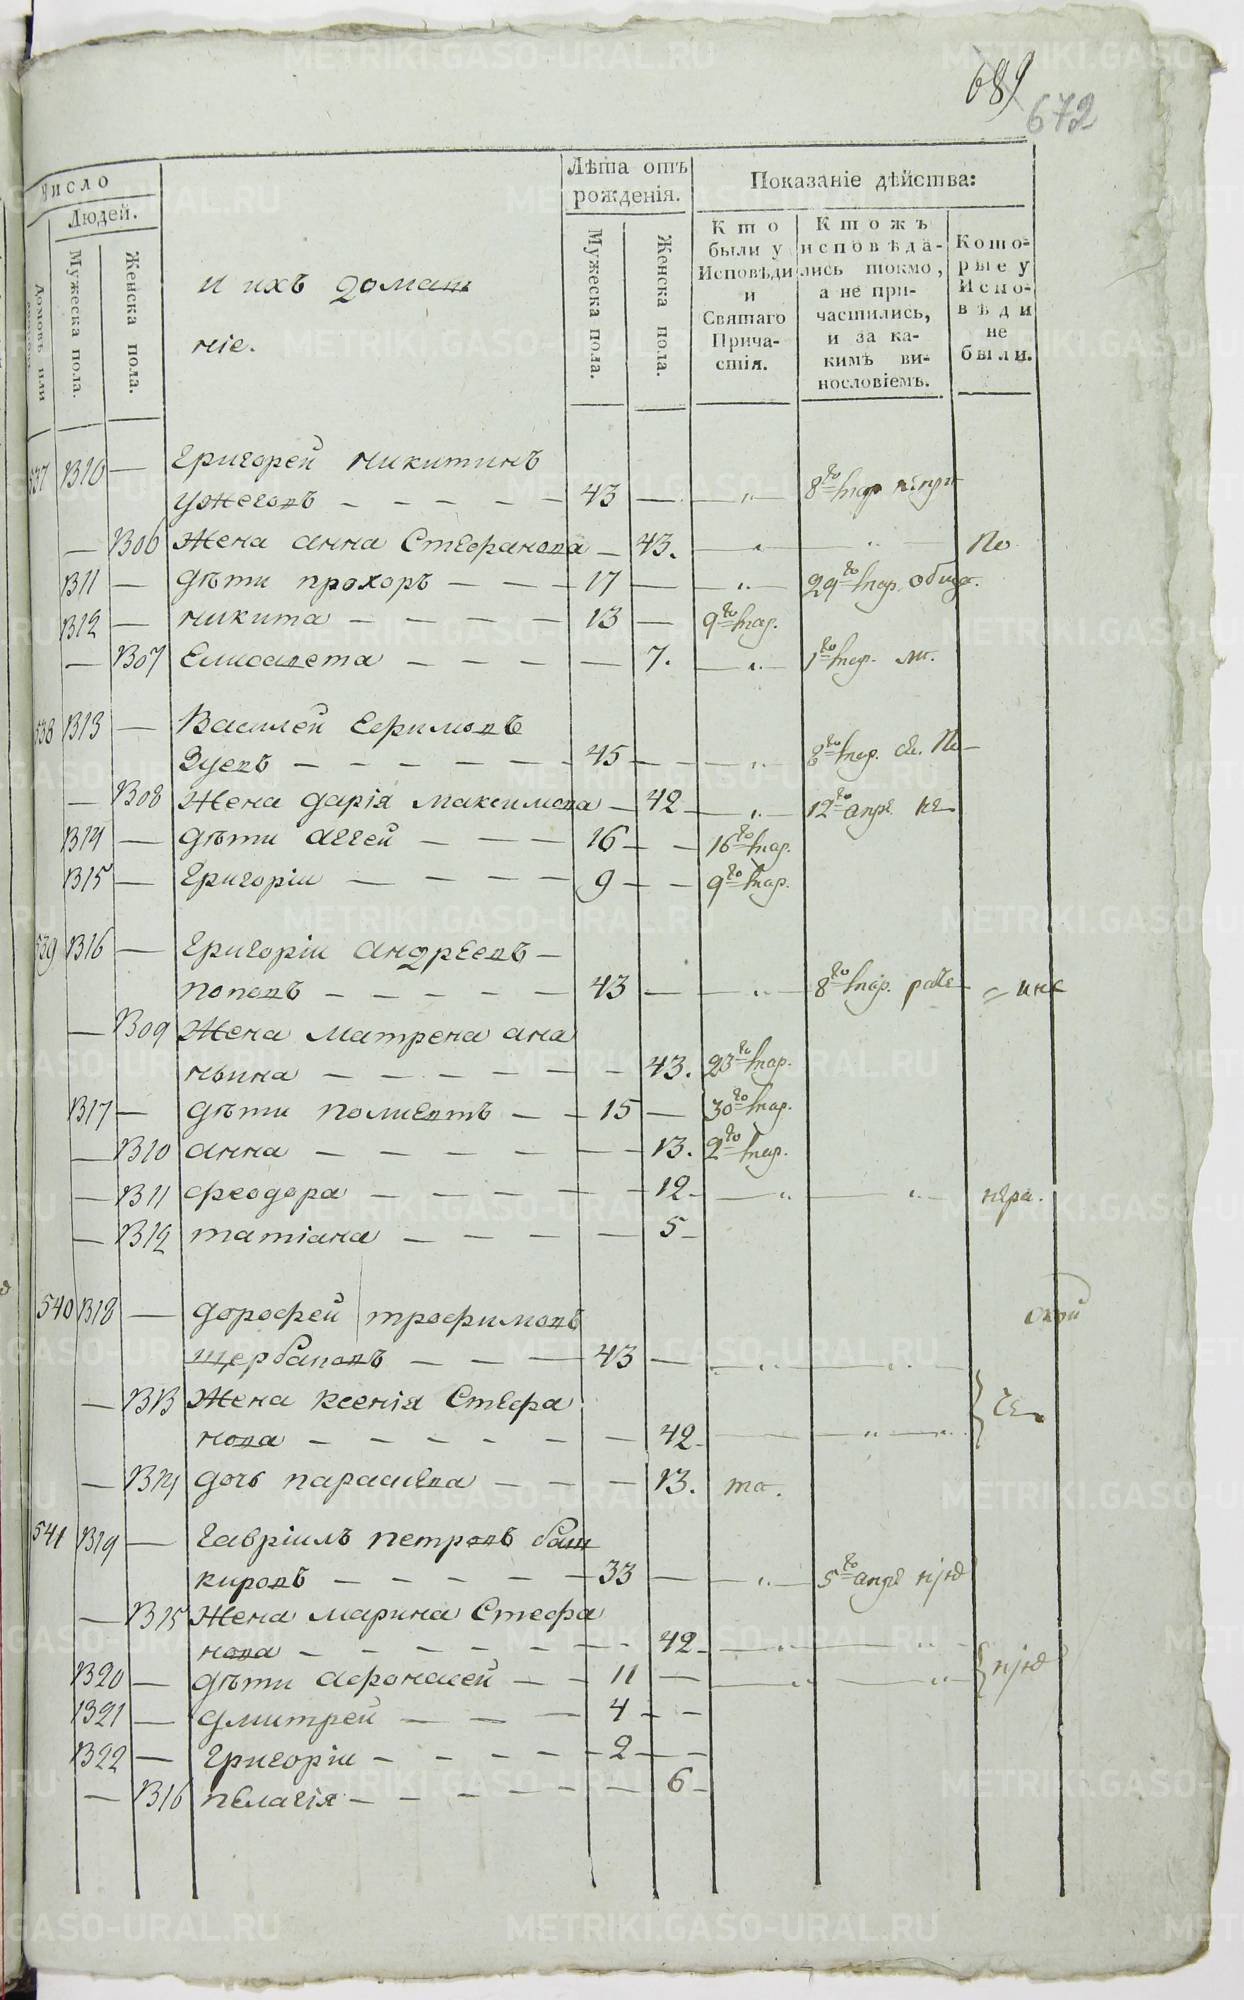 689
672
Число
Людей.
Домовъ или
Мужеска пола.
Женска пола.
и ихъ домаш
ніе.
Лѣта отъ
рожденія.
Мужеска пола.
Женска пола.
Показаніе дѣйства:
Кто
были у
Исповѣди
и
Святаго
Прича-
стія.
Ктожъ
исповѣда-
лись токмо,
а не при-
частились,
и за ка-
кимъ ви-
нословіемъ.
Кото-
рые у
Испо-
вѣди
не
были.
537 1310 — Григорей Никитинъ
Ужеговъ — 43 — 8го мар
— 1306 Жена Анна Стефанова — 43. По
1311 — дѣти Прохоръ — 17 — 29го мар.
1312 — Никита — 13 — 9го мар.
— 1307 Елисавета — 7. 1го мар.
538 1313 — Василей Ефимовъ
Зуевъ — 45 — 8го мар.
— 1308 Жена Дарія Максимова — 42 — 12го апре
1314 — дѣти Аггей — 16 — 16го мар.
1315 — Григоріи — 9 — 9го мар.
539 1316 — Григоріи Андреевъ —
Поповъ — 43 — 8го мар.
— 1309 Жена Матрена Ана
ньина — 43. 23го мар.
1317 — дѣти Полиевтъ — 15 — 30го мар.
— 1310 Анна — 13. 2го мар.
— 1311 Феодора — 12
— 1312 Татіана — 5
540 1318 — Дорофей Трофимовъ
Щербаковъ — 43 —
— 1313 Жена Ксенія Стефа
нова — 42
— 1314 дочь Параскева — 13. то.
541 1319 — Гавріилъ Петровъ Баш
кировъ — 33 — 5го апре
— 1315 Жена Марина Стефа
нова — 42
1320 — дѣти Афонасей — 11 —
1321 — Дмитрей — 4 —
1322 — Григоріи — 2 —
— 1316 Пелагія — 6
METRIKI.GASO-URAL.RU